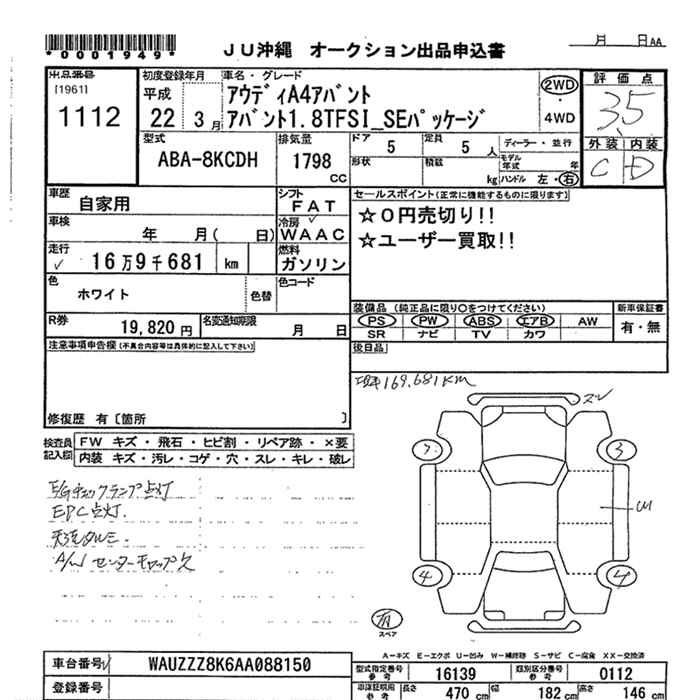 *0001949*
JU沖縄 オークション出品申込書
月 日AA
出品番号
[1961]
1112
初度登録年月
平成
22 3月
車名・グレード
アウディA4アバント
アバント1.8TFSI_SEパッケージ
2WD
・
4WD
評価点
3.5
外装 内装
C D
型式
ABA-8KCDH
排気量
1798
CC
ドア 5
定員 5人
形状
積載 kg
ディーラー・並行
モデル年式 年
ハンドル 左・右
車歴
自家用
シフト
FAT
車検
年 月( 日)
冷房
WAAC
走行
16万9千681 km
燃料
ガソリン
色
ホワイト
色替
色コード
R券
19,820円
名変通知期限
月 日
セールスポイント(正常に機能するものに限ります)
☆0円売切り!!
☆ユーザー買取!!
装備品(純正品に限り○をつけてください)
PS PW ABS エアB AW
SR ナビ TV カワ
新車保証書
有・無
後日品
注意事項申告欄(不具合内容等は具体的に記入して下さい)
修復歴 有〔箇所 〕
検査員記入欄
FW キズ・飛石・ヒビ割・リペア跡・×要
内装 キズ・汚レ・コゲ・穴・スレ・キレ・破レ
169,681KM
E/Gチェックランプ点灯
EPC点灯.
天張タルミ.
A/W センターキャップ欠
3
4
スペア
A-キズ E-エクボ U-凹み W-補修跡 S-サビ C-腐食 XX-交換済
車台番号
WAUZZZ8K6AA088150
登録番号
型式指定番号 参考
16139
類別区分番号 参考
0112
車庫証明用 参考
長さ 470 cm
幅 182 cm
高さ 146 cm